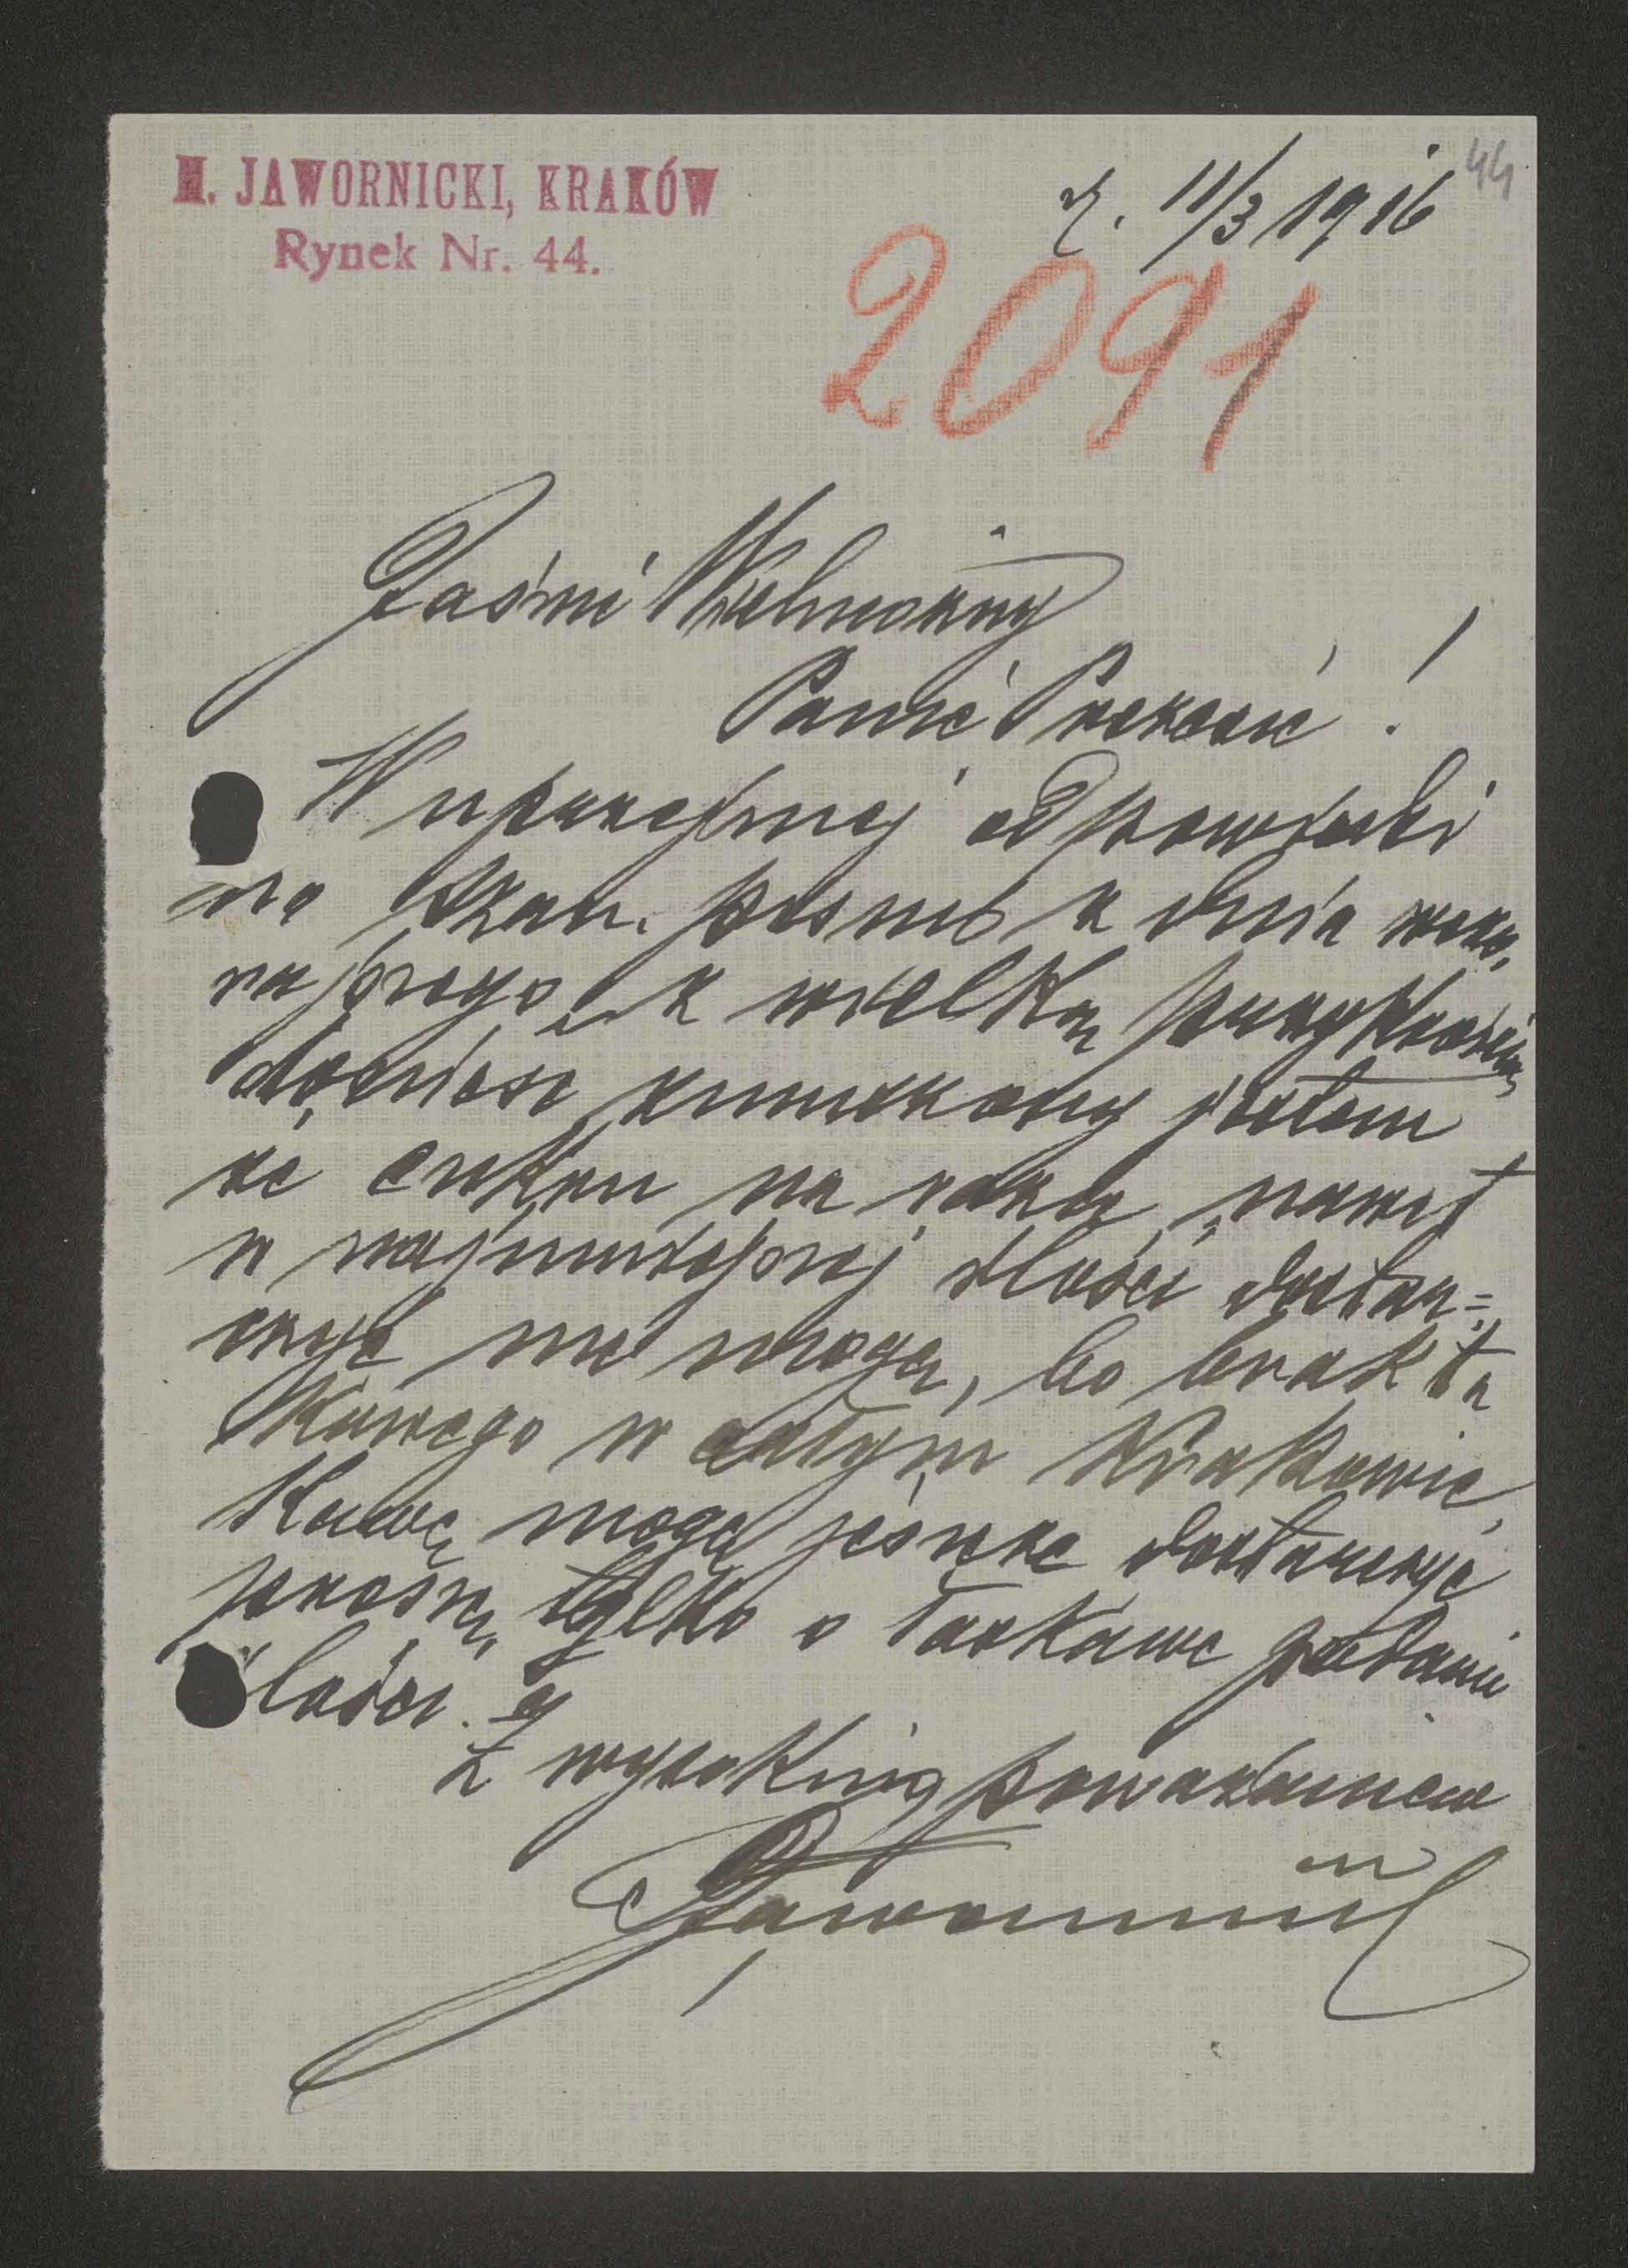 M. JAWORNICKI, KRAKÓW
Rynek Nr. 44.
d. 11/3 1916
44
2091
Jaśnie Wielmożny
Panie Prezesie!
W uprzejmej odpowiedzi
na Szan. pismo z dnia wczo,
rajszego z wielką przykrością
donieść zmuszony jestem
że cukru na razie nawet
w najmniejszej ilości dostar=
czyć nie mogę, bo brak ta
kowego w całym Krakowie
Kawę mogę jeszcze dostarczyć
proszę tylko o łaskawe podanie
ilości.
Z wysokim poważaniem
Jawornicki